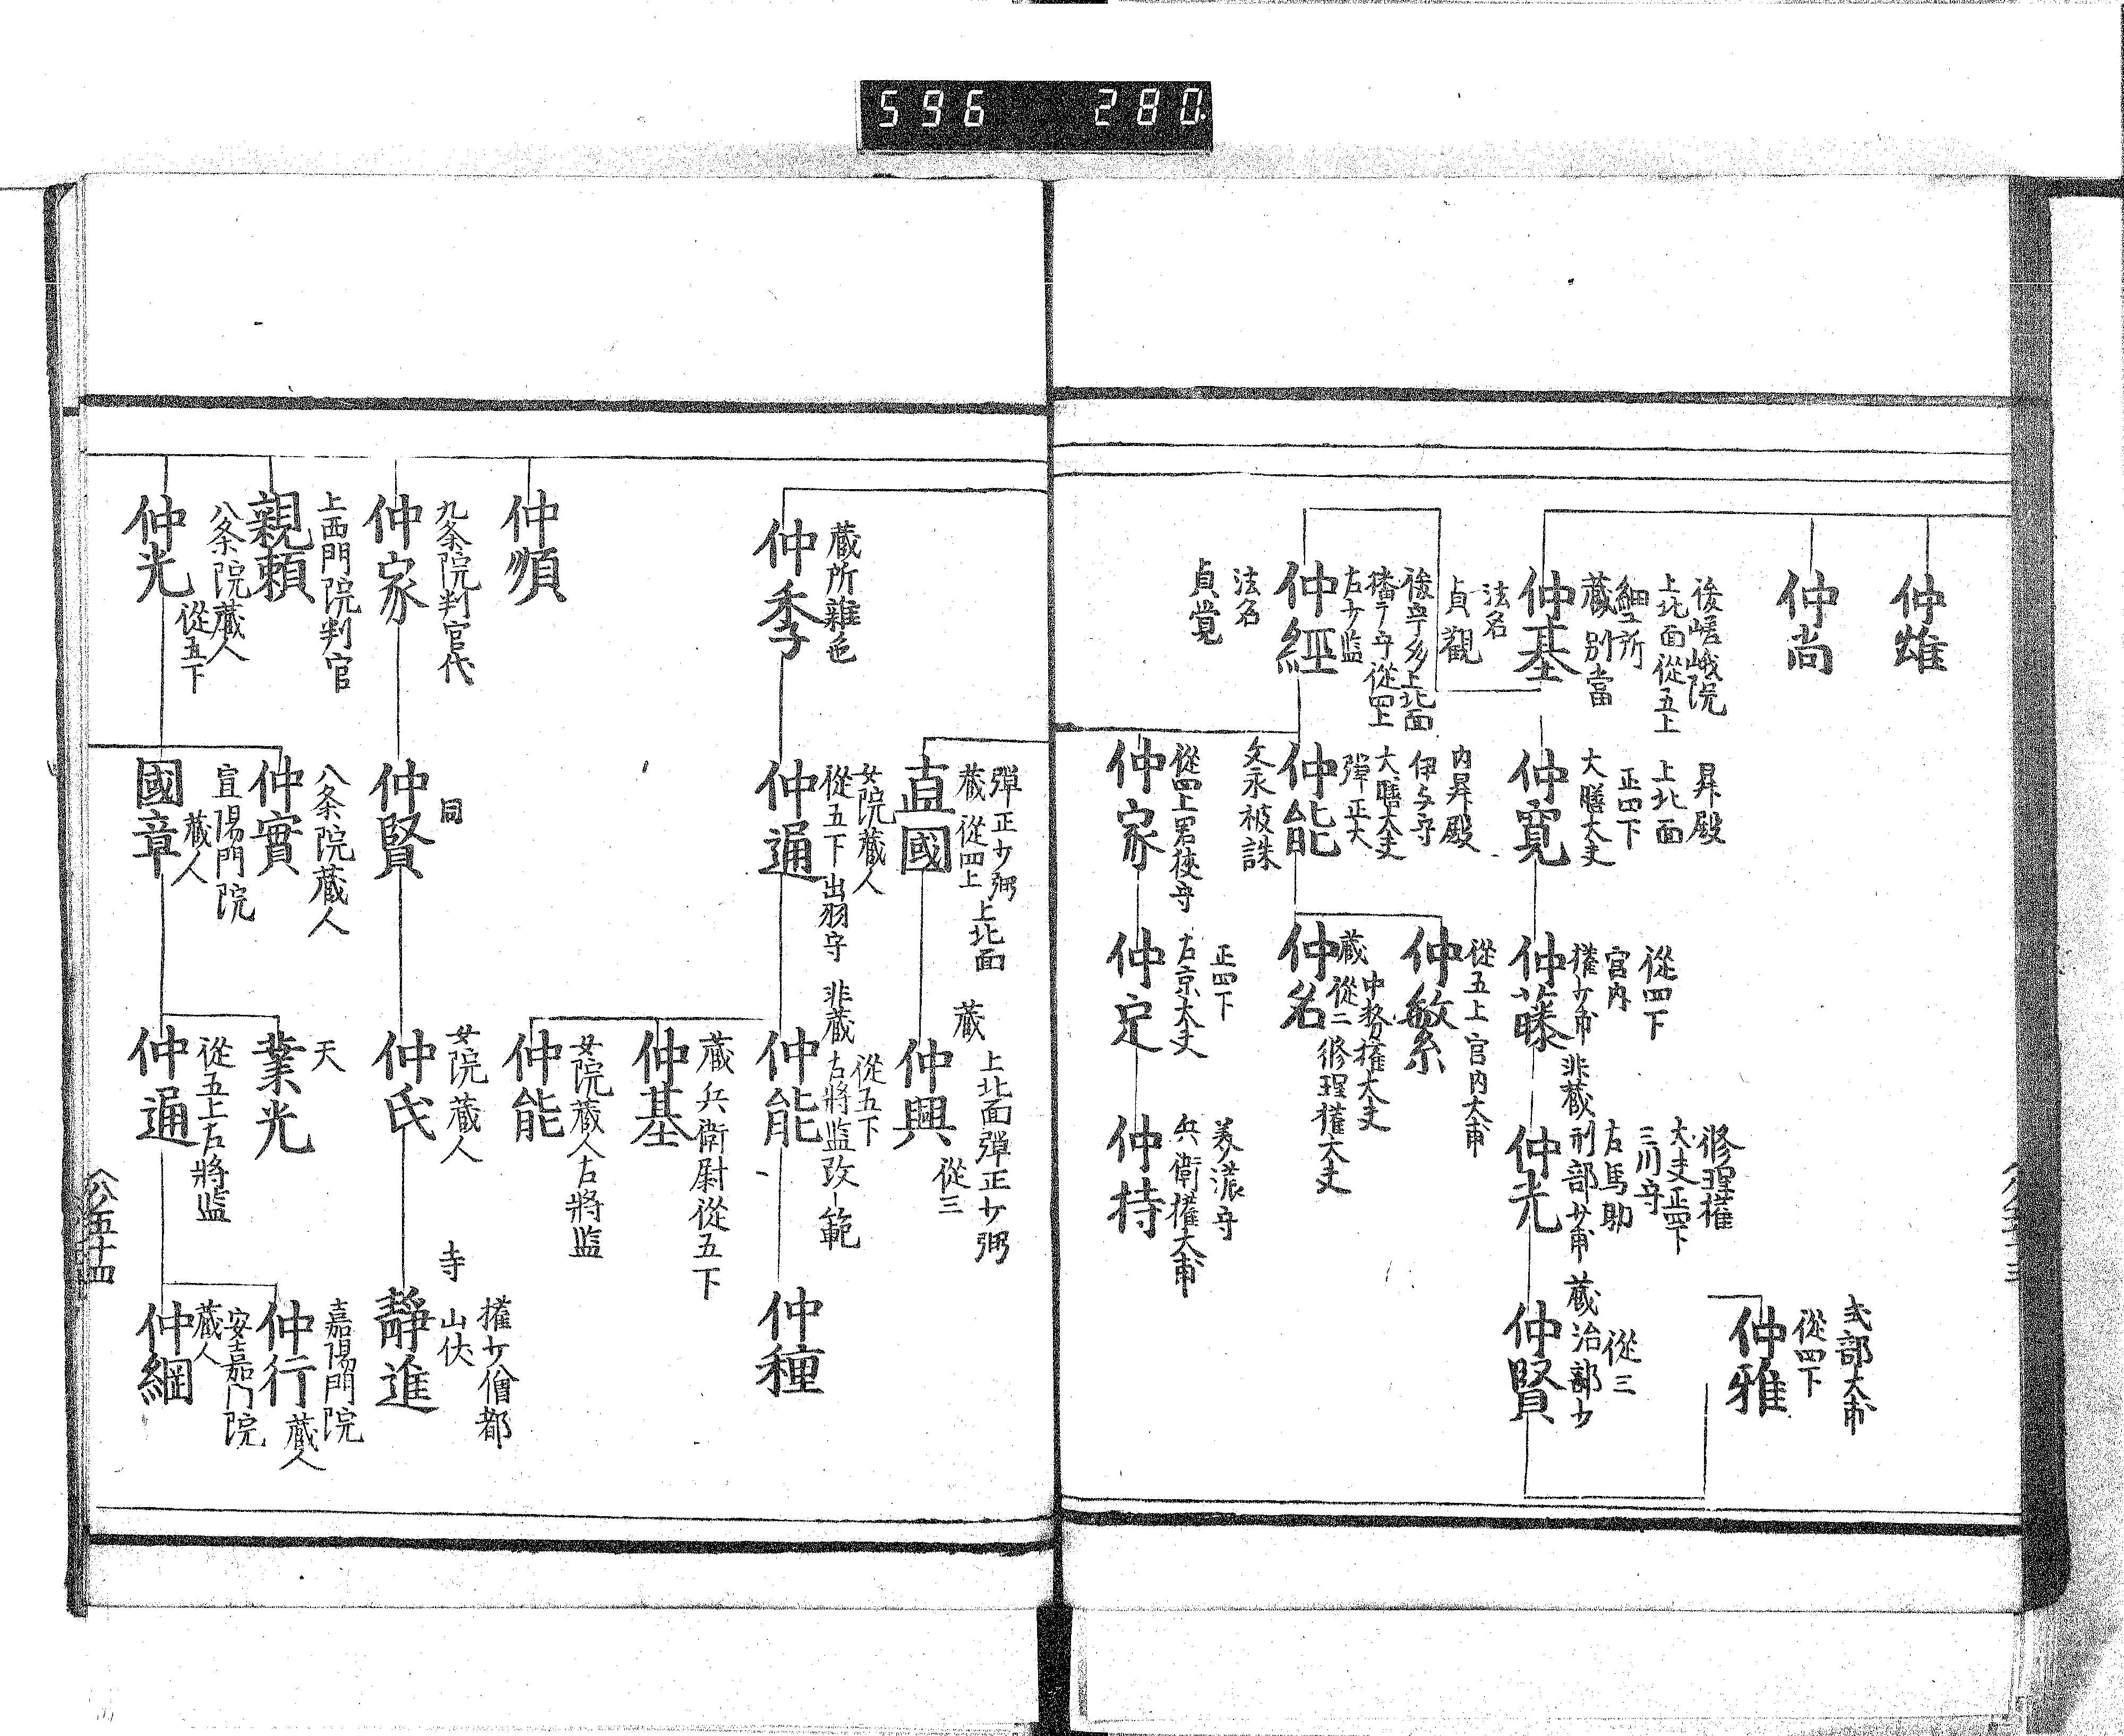 596 280
仲雄
仲尚
後嵯峨院
上北面從五上
細工所
蔵別當
仲基
法名
貞觀
後宇多上北面
播ア守從四上
左少監
仲經
法名
貞覚
昇殿
上北面
正四下
大膳大夫
仲寛
内昇殿
伊与守
大膳大夫
彈正大
仲能
文永被誅
從四上若狹守
仲家
從四下
宮内
權少甫
仲藤
從五上宮内大甫
仲繁
中務權大夫
蔵從二修理權大夫
仲名
正四下
右京大夫
仲定
修理權
大夫正四下
三川守
右馬助
非蔵刑部少甫
仲光
美濃守
兵衛權大甫
仲持
從三
蔵治部少
仲賢
式部大甫
從四下
仲雅
蔵所雜色
仲季
仲順
九条院判官代
仲家
上西門院判官
親頼
八条院蔵人
從五下
仲光
彈正少弼
蔵從四上
上北面
直國
女院蔵人
從五下出羽守
仲通
同
仲賢
八条院蔵人
仲實
宣陽門院
蔵人
國章
蔵
上北面彈正少弼
從三
仲興
非蔵
從五下
右將監改範
仲能
蔵兵衛尉從五下
仲基
女院蔵人右將監
仲能
女院蔵人
仲氏
天
業光
從五上右將監
仲通
仲種
權少僧都
寺
山伏
靜進
嘉陽門院
蔵人
仲行
安嘉门院
蔵人
仲綱
八ノ五十四